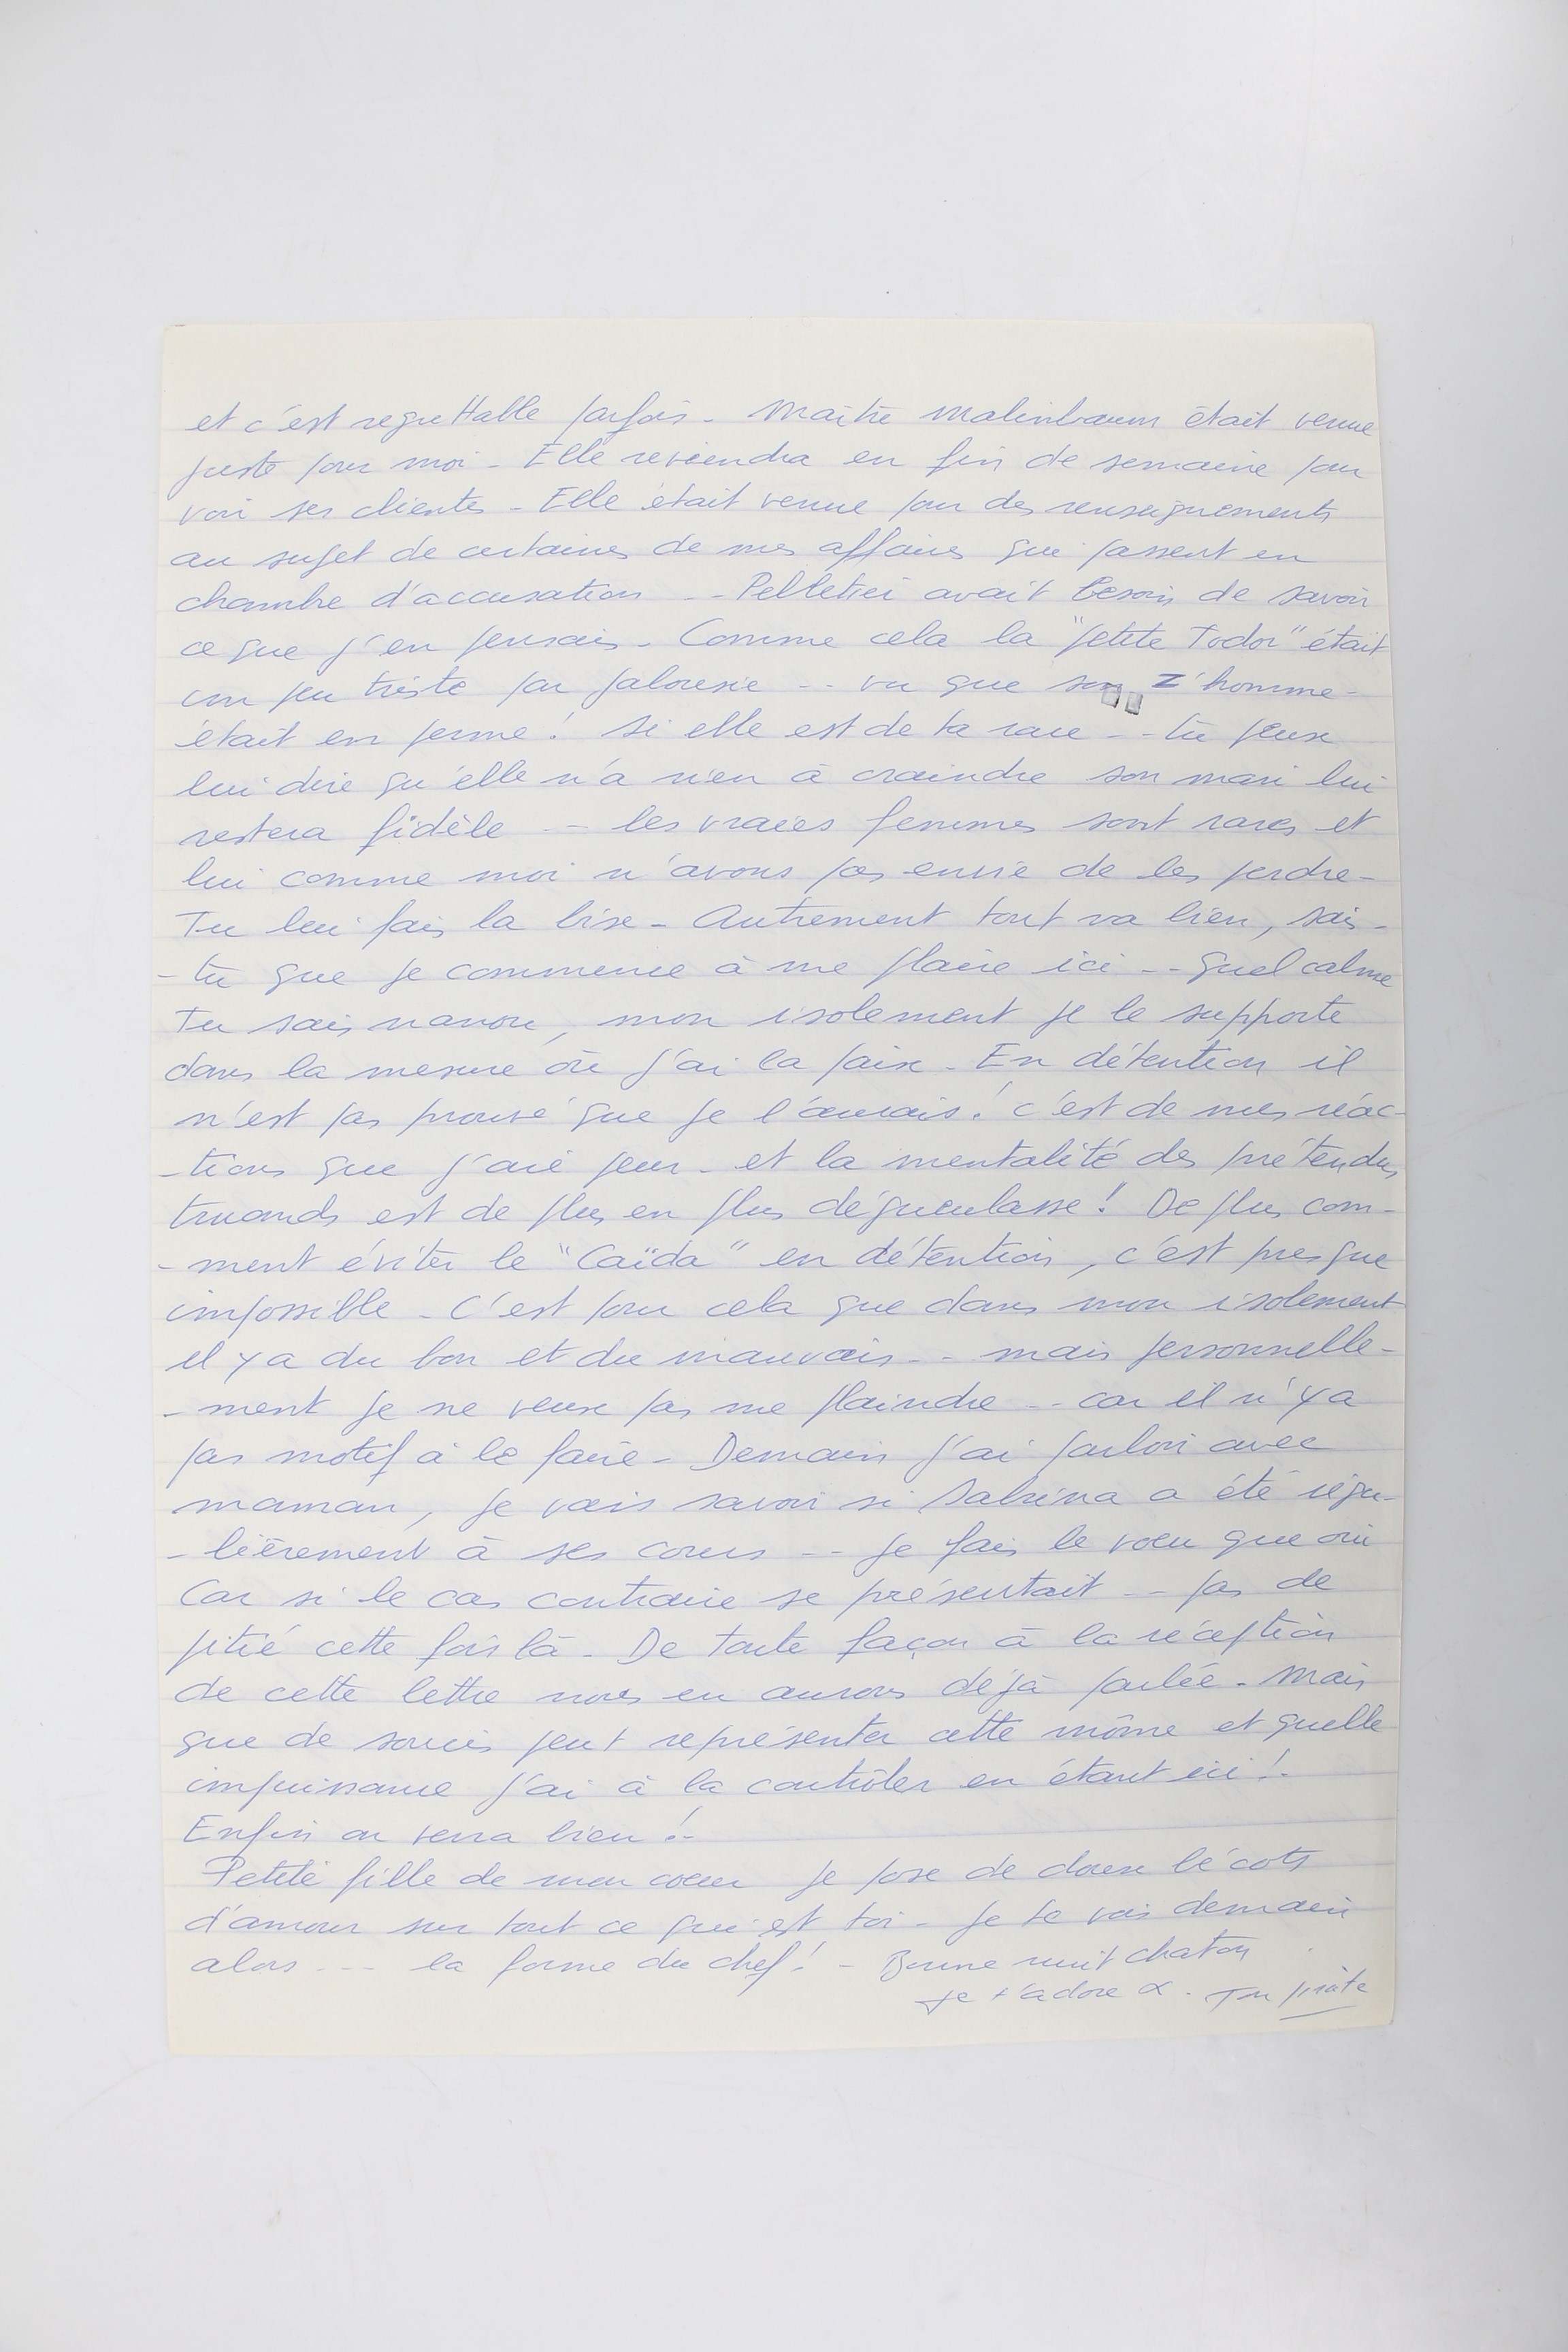 et c'est regrettable parfois - Maître Malinbaum était venue
juste pour moi - Elle reviendra en fin de semaine pour
voir ses clientes - Elle était venue pour des renseignements
au sujet de certaines de mes affaires qui passent en
chambre d'accusation -- Pelletier avait besoin de savoir
ce que j'en pensais - Comme cela la "petite Todor" était
un peu triste par jalousie -- vu que son Z'homme -
était en forme ! Si elle est de ta race -- tu peux
lui dire qu'elle n'a rien à craindre son mari lui
restera fidèle -- les vraies femmes sont rares et
lui comme moi n'avons pas envie de les perdre -
Tu lui fais la bise - Autrement tout va bien, sais-
-tu que je commence à me plaire ici -- quel calme
Tu sais nanou, mon isolement je le supporte
dans la mesure où j'ai la paix - En détention il
n'est pas prouvé que je l'aurais ! c'est de mes réac-
-tions que j'aie peur - et la mentalité des prétendus
truands est de plus en plus dégueulasse ! De plus com-
-ment éviter le "Caïda" en détention, c'est presque
impossible - C'est pour cela que dans mon isolement
il y a du bon et du mauvais -- mais personnelle-
-ment je ne veux pas me plaindre -- car il n'y a
pas motif à le faire - Demain j'ai parloir avec
maman, je vais savoir si Sabrina a été régu-
-lièrement à ses cours -- je fais le voeu que oui
Car si le cas contraire se présentait -- pas de
pitié cette fois là - De toute façon à la réception
de cette lettre nous en aurons déjà parlée - Mais
que de soucis peut représenter cette môme et quelle
impuissance j'ai à la contrôler en étant ici ! -
Enfin on verra bien ! -
Petite fille de mon coeur je pose de doux bécots
d'amour sur tout ce qui est toi - Je te vois demain
alors --- la forme du chef ! - Bonne nuit chaton
Je t'adore α . Ton pirate